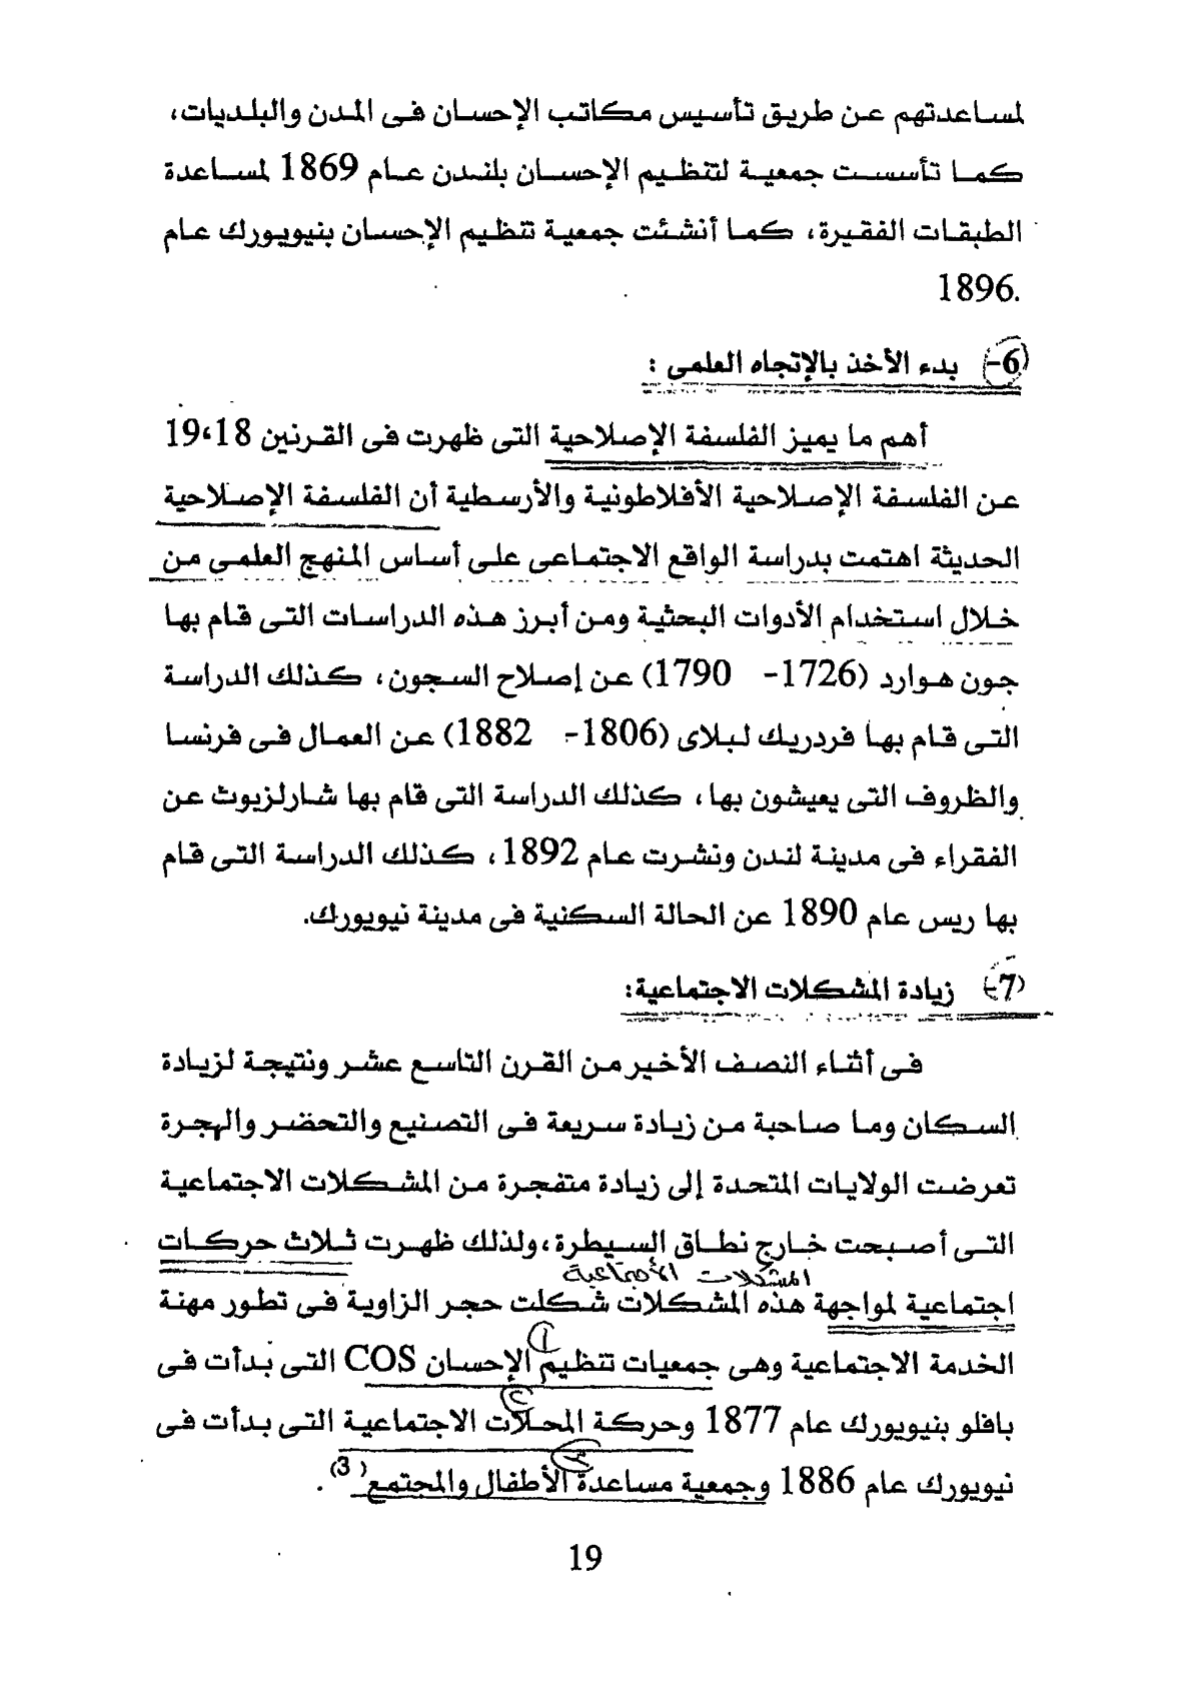 لمساعدتهم عن طريق تأسيس مكاتب الإحسان فى المدن والبلديات،
كما تأسست جمعية لتنظيم الإحسان بلندن عام 1869 لمساعدة
الطبقات الفقيرة، كما أنشئت جمعية تنظيم الإحسان بنيويورك عام
1896.
6- بدء الأخذ بالإتجاه العلمى :
أهم ما يميز الفلسفة الإصلاحية التى ظهرت فى القرنين 18،19
عن الفلسفة الإصلاحية الأفلاطونية والأرسطية أن الفلسفة الإصلاحية
الحديثة اهتمت بدراسة الواقع الاجتماعى على أساس المنهج العلمى من
خلال استخدام الأدوات البحثية ومن أبرز هذه الدراسات التى قام بها
جون هوارد (1726- 1790) عن إصلاح السجون، كذلك الدراسة
التى قام بها فردريك لبلاى (1806- 1882) عن العمال فى فرنسا
والظروف التى يعيشون بها، كذلك الدراسة التى قام بها شارلزبوث عن
الفقراء فى مدينة لندن ونشرت عام 1892، كذلك الدراسة التى قام
بها ريس عام 1890 عن الحالة السكنية فى مدينة نيويورك.
7- زيادة المشكلات الاجتماعية:
فى أثناء النصف الأخير من القرن التاسع عشر ونتيجة لزيادة
السكان وما صاحبة من زيادة سريعة فى التصنيع والتحضر والهجرة
تعرضت الولايات المتحدة إلى زيادة متفجرة من المشكلات الاجتماعية
التى أصبحت خارج نطاق السيطرة، ولذلك ظهرت ثلاث حركات
المشكلات الأجتماعية
اجتماعية لمواجهة هذه المشكلات شكلت حجر الزاوية فى تطور مهنة
١
الخدمة الاجتماعية وهى جمعيات تنظيم الإحسان COS التى بدأت فى
٢
بافلو بنيويورك عام 1877 وحركة المحلات الاجتماعية التى بدأت فى
٣
نيويورك عام 1886 وجمعية مساعدة الأطفال والمجتمع(3).
19